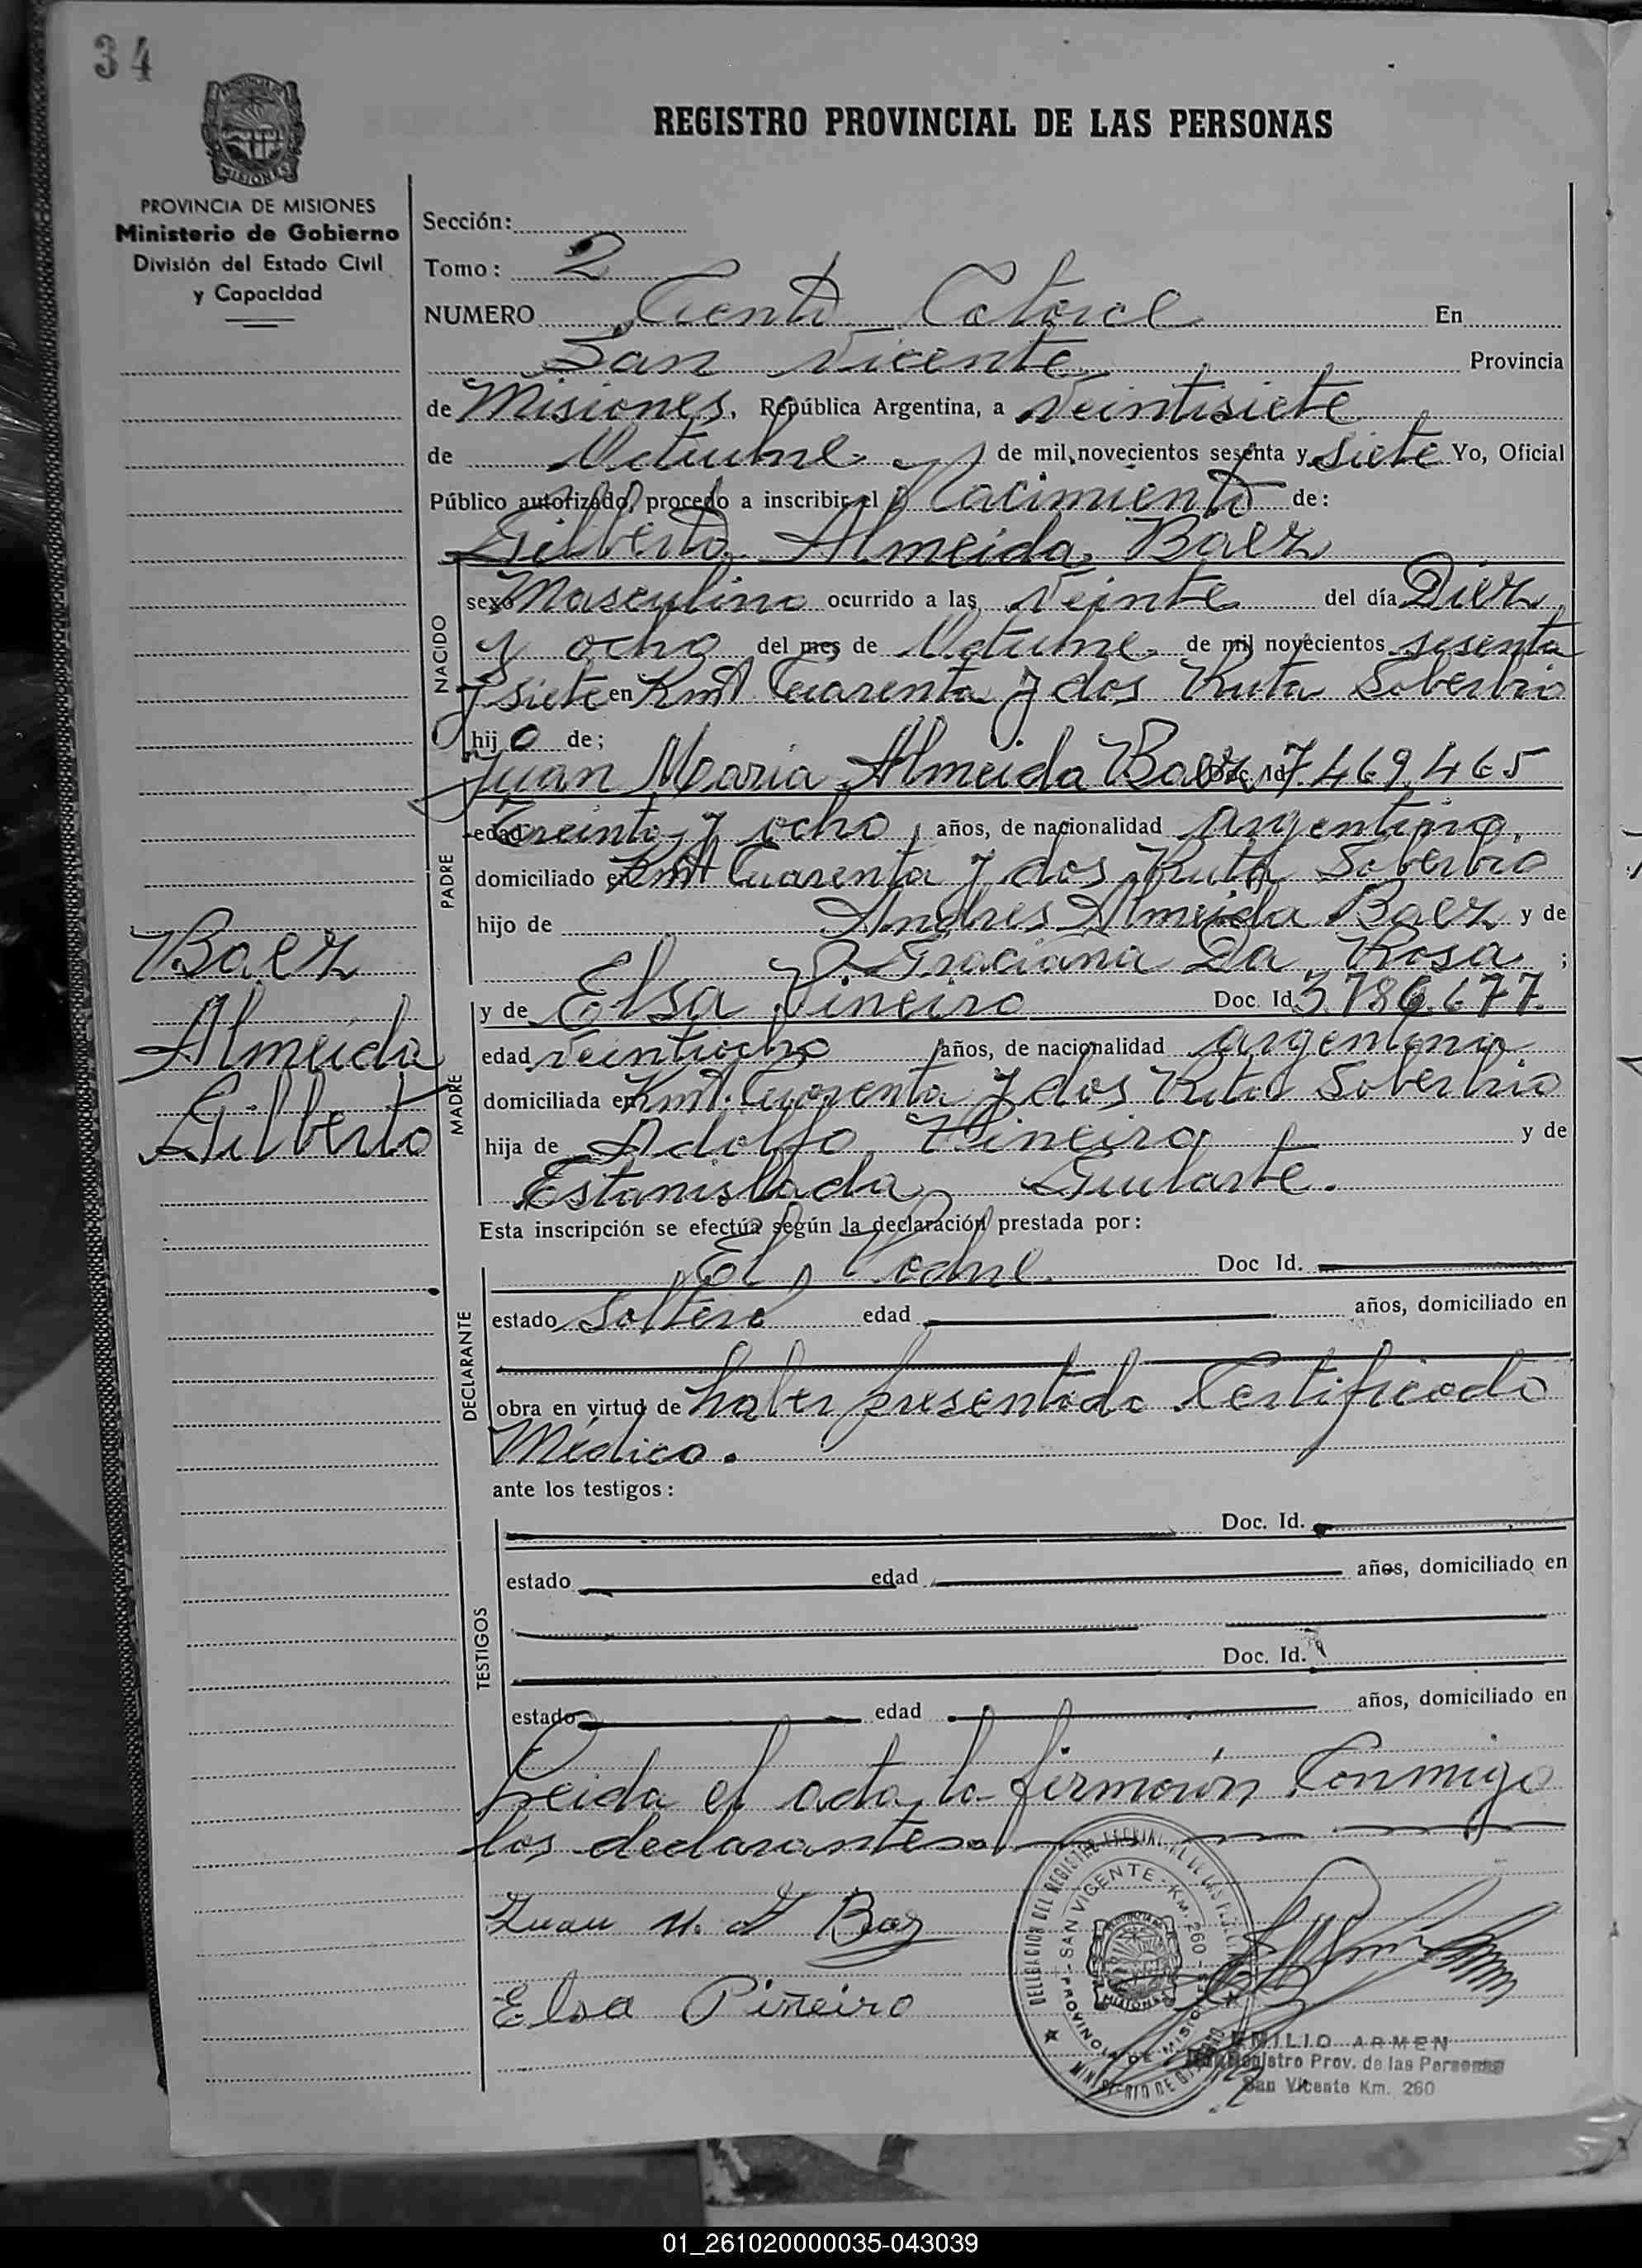 34
REGISTRO PROVINCIAL DE LAS PERSONAS
PROVINCIA DE MISIONES
Ministerio de Gobierno
División del Estado Civil
y Capacidad
Sección:
Tomo: 2
NUMERO Ciento Catorce En
San Vicente Provincia
de Misiones, República Argentina, a Veintisiete
de Octubre de mil novecientos sesenta y siete Yo, Oficial
Público autorizado, procedo a inscribir el Nacimiento de:
Gilberto Almeida Baez
NACIDO
sexo Masculino ocurrido a las Veinte del día Diez
y ocho del mes de Octubre de mil novecientos sesenta
y siete en Kmt Cuarenta y dos Ruta Soberbio
hijo de;
Juan Maria Almeida Baez Doc. Id 7.469.465
PADRE
edad Treinta y ocho años, de nacionalidad argentino,
domiciliado en Kmt Cuarenta y dos Ruta Soberbio
hijo de Andres Almeida Baez y de
Graciana Da Rosa ;
y de Elsa Pineiro Doc. Id 3.786.677.
MADRE
edad veintiocho años, de nacionalidad argentina
domiciliada en Kmt. Cuarenta y dos Ruta Soberbio
hija de Adolfo Pineiro y de
Estanislada Gularte.
Esta inscripción se efectúa según la declaración prestada por:
DECLARANTE
El Padre Doc Id.
estado Soltero edad años, domiciliado en
obra en virtud de haber presentado Certificado
Médico.
ante los testigos:
TESTIGOS
Doc. Id.
estado edad años, domiciliado en
Doc. Id.
estado edad años, domiciliado en
Leida el acta la firmarón Conmigo
los declarantes.
Baez
Almeida
Gilberto
Juan M. A Baez
Elsa Piñeiro
DELEGACION DEL REGISTRO PROVINCIAL DE LAS PERSONAS
SAN VICENTE - KM. 260 - PROVINCIA DE MISIONES
MINISTERIO DE GOBIERNO
MISIONES
EMILIO ARMEN
Registro Prov. de las Personas
San Vicente Km. 260
01_261020000035-043039